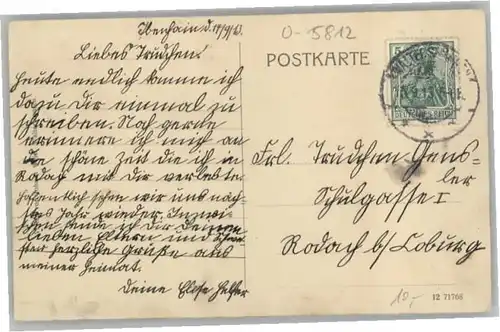 d. 17/9/13.
O-5812
Liebes Trudchen!
Heute endlich komme ich
dazu Dir einmal zu
schreiben. Noch gerne
erinnere ich mich an
die schöne Zeit die ich in
Rodach mit Dir verlebte.
Hoffentlich sehen wir uns näch-
stes Jahr wieder. Inzwi-
schen sende ich Dir Deinen
lieben Eltern und
herzliche Grüße aus
meiner Heimat.
Deine
POSTKARTE
5
DEUTSCHES REICH
Frl. Trudchen Gens-
ler
Schulgasse I
Rodach b/Coburg
10,-
12 71766